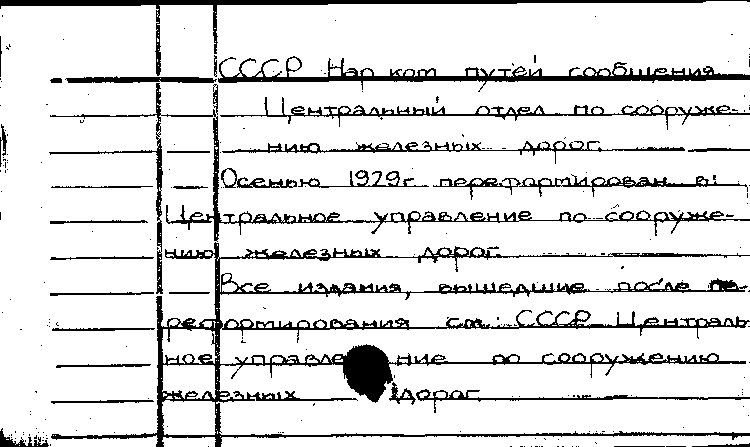 СССР Нар ком путей сообщения
Центральный отдел по сооруже-
нию железных дорог.
Осенью 1929г переформирован в:
Центральное управление по сооруже-
нию железных дорог.
Все издания, вышедшие после пе-
реформирования см: СССР Централь
ное управле ние по сооружению
железных дорог.